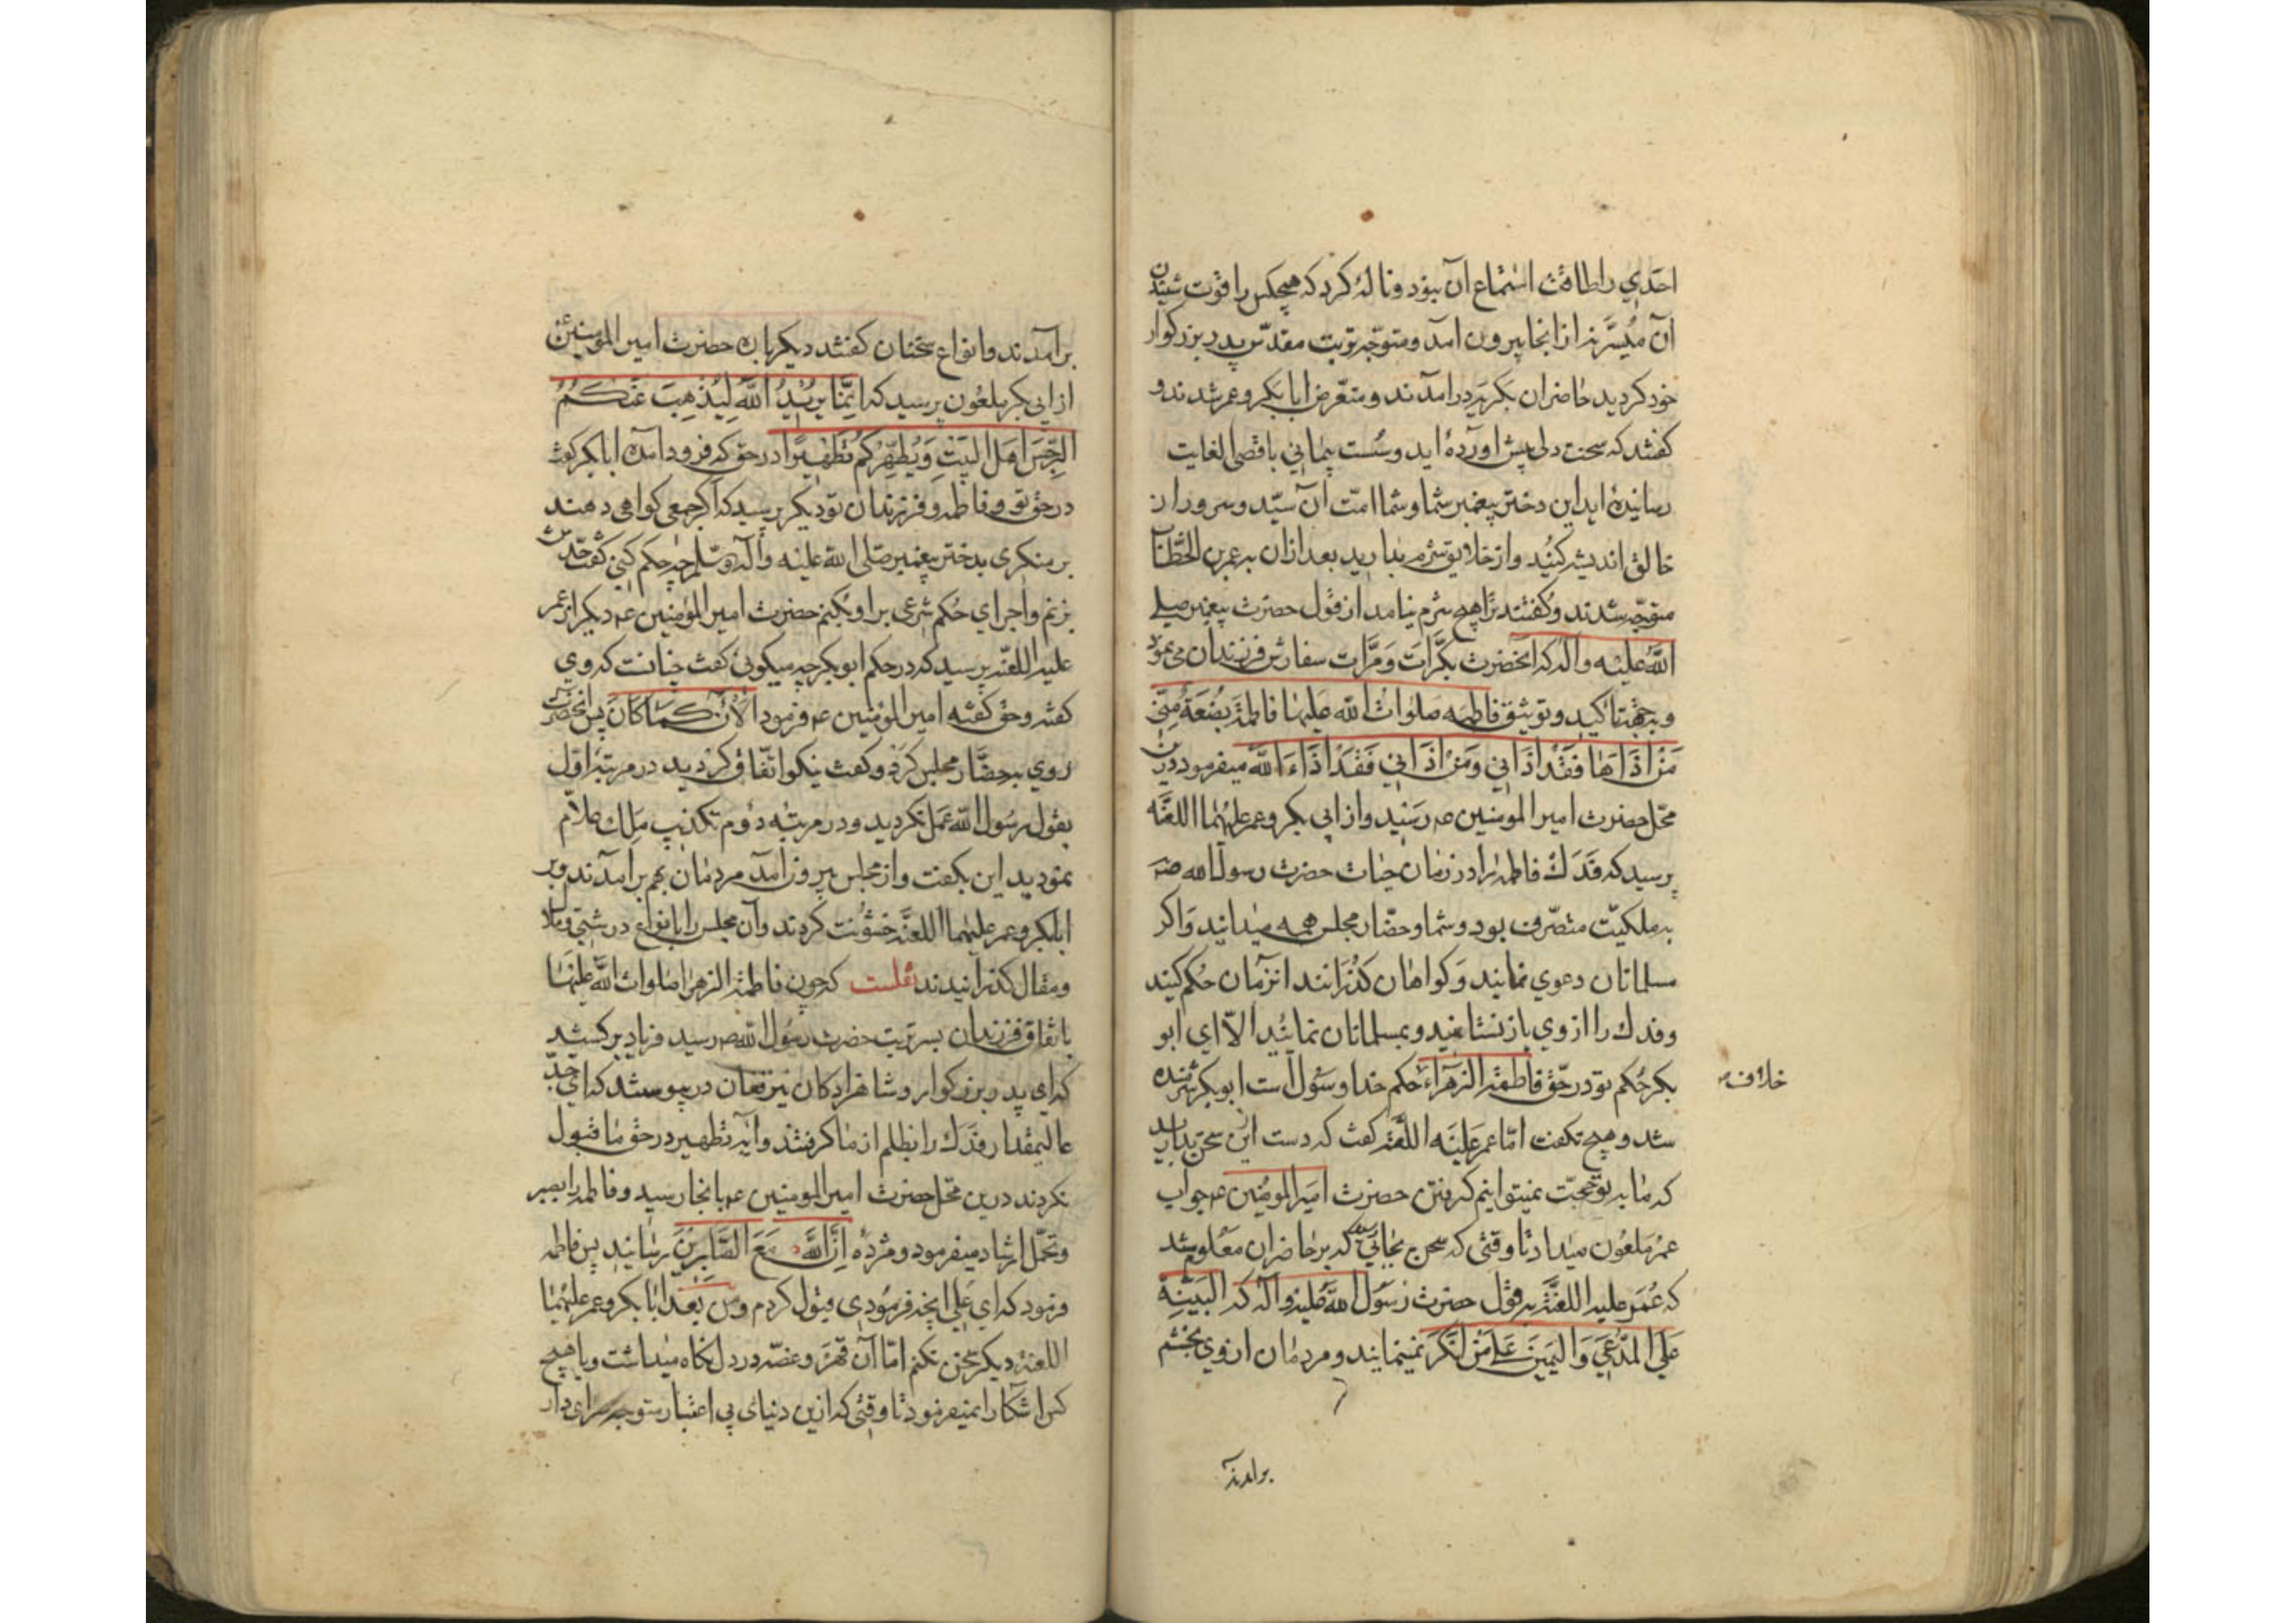 احدی را طاقت استماع آن نبود و ناله کرد که هیچکس را قوت شنیدن
آن میسّر نه از آنجا بیرون آمد و متوجّه تربت مقدّس پدر بزرکوار
خود کردید حاضران بکریه درآمدند و متعرّض ابابکر و عمر شدند و
کفتند که سخت دلی پیش آورده اید و سُست پیمانی باقصی الغایت
رسانیده اید این دختر پیغمبر شما و شما امّت آن سیّد و سرور از
خالق اندیشه کنید و از خلایق شرم بدارید بعد ازان به عمر بن الخطّاب
متوجّه شدند و کفتند ترا هیچ شرم نیامد از قول حضرت پیغمبر صلی
اللّه علیه و آله که آنحضرت بکرّات و مرّات سفارش فرزندان می نمود
و بجهة تاکید و توثیق فاطمه صلوات الله علیها فاطمة بضعة منّی
مَن اذاها فقد اذانی و مَن اذانی فقد اذاء اللّه میفرمود درین
محّل حضرت امیر المومنین عم رسید و از ابی بکر و عمر علیهما اللعنه
پرسید که فدک فاطمه را در زمان حیات حضرت رسول الله صم
به ملکیّت متصّرف بود و شما و حضّار مجلس همه میدانید و اکر
مسلمانان دعوی نمایند و کواهان کذرانند انزمان حکم کنید
و فدک را از وی باز نستانید و بمسلمانان نمائید الاّ ای ابو
بکر حُکم تو در حّق فاطمة الزهراء حکم خدا و رسول است ابوبکر شرمنده
خلاف
شد و هیچ نکفت امّا عمر علیه اللعنه کفت که دست ازین سخن بدارید
که ما به تو حجّت نمیتوانیم کرفتن حضرت امیر المومنین عم جواب
عمر ملعون میداد تا وقتی که سخن بجائی رسید که بر حاضران معلوم شد
که عُمر علیه اللعنه به قول حضرت رسول اللّه علیه و آله که البیّنة
علی المدّعی و الیمین علی من انکر نمینمایند و مردمان از وی بخشم
برآمدند
برآمدند و انواع سخنان کفتند دیکر باره حضرت امیر المومنین
از ابی بکر ملعون پرسید که انّما یرید اللّه لیذهب عنکم
الرّجس اهل البیت و یطهّرکم تطهیرا در حق که فرود آمده ابابکر کفت
در حق تو و فاطمه و فرزندان تو دیکر پرسید که اکر جمعی کواهی دهند
بر منکری بدختر پیغمبر صلی اللّه علیه و آله و سلم چه حکم کنی کفت حدّش
بزنم و اجرای حُکم شرعی بر او بکنم حضرت امیر المومنین عم دیکر از عمر
علیه اللعنه پرسید که در حکم ابوبکر چه میکوئی کفت چنانست که وی
کفته و حق کفته امیر المومنین عم فرمود الآن کما کان پس آنحضرت
روی به حضّار مجلس کرد و کفت نیکو اتّفاق کردید در مرتبه اوّل
بقول رسول اللّه عمل نکردید و در مرتبه دوم تکذیب ملک علاّم
نمودید این بکفت و از مجلس بیرون آمد مردمان بهم برآمدند و بر
ابابکر و عمر علیهما اللعنه خشونت کردند و آن مجلس را بانواع درشتی و ملال
و مقال کذرانیدند نقلست که چون فاطمة الزهرا صلوات اللّه علیها
باتفاق فرزندان بسر تربت حضرت رسول اللّه صم رسید فریاد برکشید
که ای پدر بزرکوار و شاهزادکان نیز بفغان در پیوستند که ای جدّ
عالیمقدار فدک را بظلم از ما کرفتند و آیه تطهیر در حق ما قبول
نکردند درین محّل حضرت امیر المومنین عم بانجا رسید و فاطمه را بصبر
و تحمّل ارشاد میفرمود و مژده انّ اللّه مع الصّابرین رسانید پس فاطمه
فرمود که ای علی آنچه فرمودی قبول کردم و من بعد ابابکر و عمر علیهما
اللعنه دیکر سخن نکنم امّا آن قهر و غصّه در دل نکاه میداشت و با هیچ
کس آشکارا نمیفرمود تا وقتی که ازین دنیای بی اعتبار متوجه سرای دار